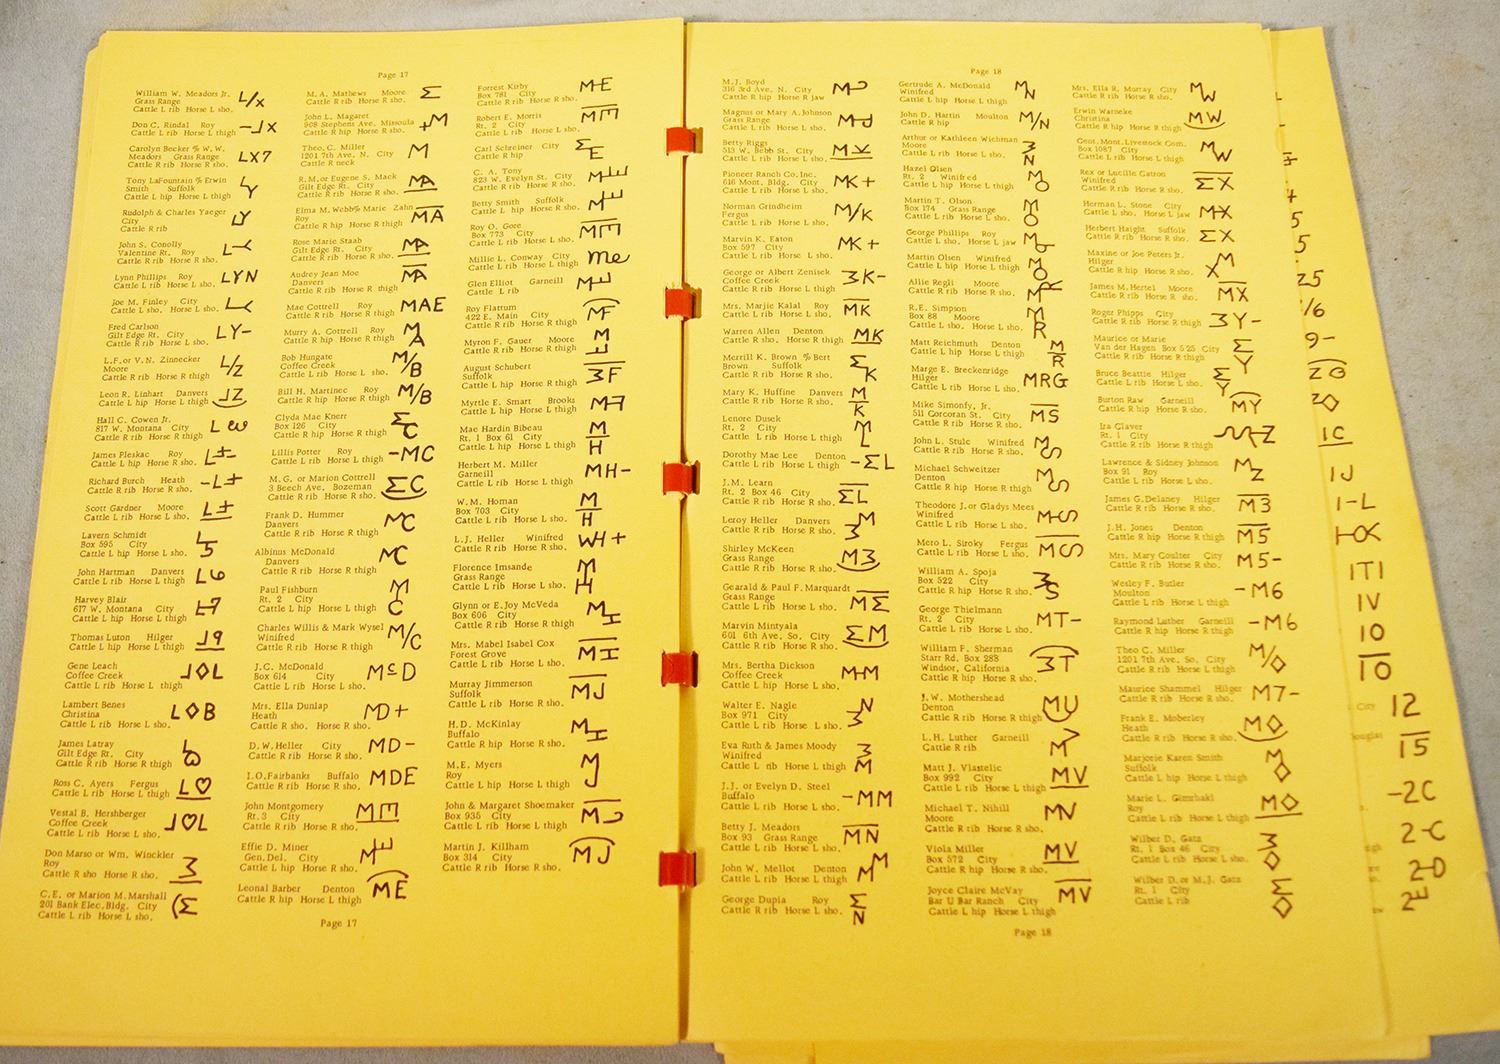 Page 17
William W. Meadors Jr.
Grass Range
Cattle L rib Horse L sho. L/x
Don C. Rindal Roy
Cattle L rib Horse L thigh
Carolyn Becker % W. W.
Meadors Grass Range LX7
Cattle R rib Horse R sho.
Tony LaFountain % Erwin
Smith Suffolk
Cattle L hip Horse L sho.
Rudolph & Charles Yaeger
City
Cattle R rib
John S. Conolly
Valentine Rt. Roy
Cattle R rib Horse R sho.
Lynn Phillips Roy LYN
Cattle R rib Horse R sho.
Joe M. Finley City
Cattle L rib Horse L sho.
Fred Carlson
Gilt Edge Rt. City LY-
Cattle R sho. Horse R thigh
L.F. or V.N. Zinnecker
Moore L/Z
Cattle R rib Horse R thigh
Leon R. Linhart Danvers
Cattle L hip Horse L thigh
Hall C. Cowen Jr.
817 W. Montana City
Cattle R rib Horse R thigh
James Pleskac Roy
Cattle L hip Horse R sho.
Richard Burch Heath
Cattle L rib Horse R sho.
Scott Gardner Moore
Cattle L rib Horse L sho.
Lavern Schmidt
Box 595 City
Cattle L hip Horse L sho.
John Hartman Danvers L6
Cattle L rib Horse L thigh
Harvey Blair
617 W. Montana City
Cattle L rib Horse L sho.
Thomas Luton Hilger
Cattle L hip Horse L thigh
Gene Leach
Coffee Creek
Cattle L rib Horse L thigh
Lambert Benes
Christina L◇B
Cattle L rib Horse L sho.
James Latray
Gilt Edge Rt. City
Cattle R rib Horse R thigh
Ross C. Ayers Fergus L♡
Cattle R rib Horse L thigh
Vestal B. Hershberger
Coffee Creek
Cattle L rib Horse L sho.
Don Marso or Wm. Winckler
Roy
Cattle R sho Horse R sho.
C.E. or Marion M. Marshall
201 Bank Elec. Bldg. City
Cattle L rib Horse L sho.
M.A. Mathews Moore
Cattle R rib Horse R sho.
John L. Magaret
908 Stephens Ave. Missoula +M
Cattle R hip Horse R sho.
Theo. C. Miller
1201 7th Ave. N. City M
Cattle R neck
R.M. or Eugene S. Mack
Gilt Edge Rt. City
Cattle R rib Horse R sho.
Elma M. Webb% Marie Zahn
Roy MA
Cattle R hip Horse R thigh
Rose Marie Staab
Gilt Edge Rt. City
Cattle R rib Horse R sho.
Audrey Jean Moe
Danvers
Cattle R rib Horse R thigh
Mae Cottrell Roy MAE
Cattle R rib Horse R thigh
Murry A. Cottrell Roy
Cattle R rib Horse R thigh
Bob Hungate
Coffee Creek M/B
Cattle R rib Horse R sho.
Bill H. Martinec Roy M/B
Cattle R hip Horse R thigh
Clyda Mae Knerr
Box 126 City
Cattle R hip Horse R thigh
Lillis Potter Roy -MC
Cattle L rib Horse L thigh
M.G. or Marion Cottrell
3 Beech Ave. Bozeman
Cattle R rib Horse R sho.
Frank D. Hummer
Danvers MC
Cattle R rib Horse R sho.
Albinus McDonald
Danvers MC
Cattle R rib Horse R thigh
Paul Fishburn
Rt. 2 City
Cattle L hip Horse L thigh
Charles Willis & Mark Wysel
Winifred M/C
Cattle R rib Horse R sho.
J.C. McDonald
Box 614 City McD
Cattle L rib Horse L sho.
Mrs. Ella Dunlap
Heath MD+
Cattle R sho. Horse R sho.
D.W. Heller City MD-
Cattle R rib Horse R sho.
I.O. Fairbanks Buffalo MDE
Cattle R rib Horse R sho.
John Montgomery
Rt. 3 City
Cattle R rib Horse R sho.
Effie D. Miner
Gen. Del. City
Cattle L rib Horse L thigh
Leonal Barber Denton ME
Cattle R hip Horse L thigh
Forrest Kirby
Box 781 City
Cattle R rib Horse R sho.
Robert E. Morris
Rt. 2 City
Cattle L rib
Carl Schreiner City
Cattle R hip
C. A. Tony
823 W. Evelyn St. City
Cattle L rib Horse L sho.
Betty Smith Suffolk
Cattle L hip Horse L sho.
Roy O. Gore
Box 773 City
Cattle R rib Horse R sho.
Millie L. Conway City me
Cattle R rib Horse L thigh
Glen Elliot Garneill
Cattle L rib
Roy Flattum
422 E. Main City MF
Cattle R rib Horse R thigh
Myron F. Gauer Moore
Cattle R rib Horse R thigh
August Schubert
Suffolk
Cattle L hip Horse R sho.
Myrtle E. Smart Brooks
Cattle L hip Horse L sho.
Mae Hardin Bibeau
Rt. 1 Box 61 City
Cattle L hip Horse L thigh
Herbert M. Miller
Garneill MH-
Cattle L rib Horse L thigh
W.M. Homan
Box 703 City
Cattle L rib Horse L thigh
L.J. Heller Winifred
Cattle R rib Horse R sho.
Florence Imsande
Grass Range
Cattle L rib Horse L sho.
Glynn or E. Joy McVeda
Box 606 City
Cattle L rib Horse L sho.
Mrs. Mabel Isabel Cox
Forest Grove
Cattle L rib Horse L sho.
Murray Jimmerson
Suffolk MJ
Cattle L rib Horse L sho.
H.D. McKinlay
Buffalo
Cattle R hip Horse R sho.
M.E. Myers
Roy
Cattle L hip Horse L thigh
John & Margaret Shoemaker
Box 935 City
Cattle L rib Horse L thigh
Martin J. Killham
Box 314 City MJ
Cattle R rib Horse R sho.
Page 17
Page 18
M.J. Boyd
316 3rd Ave. N. City
Cattle R hip Horse R jaw
Magnus or Mary A. Johnson
Grass Range
Cattle R rib Horse R sho.
Betty Riggs
513 W. Bebb St. City
Cattle L rib Horse L sho.
Pioneer Ranch Co. Inc.
616 Mont. Bldg. City MK+
Cattle L rib Horse L sho.
Norman Grindheim
Fergus M/K
Cattle L rib Horse L sho.
Marvin K. Eaton
Box 597 City MK+
Cattle L rib Horse L sho.
George or Albert Zenisek
Coffee Creek
Cattle R rib Horse R sho.
Mrs. Marjie Kalal Roy MK
Cattle R rib Horse R sho.
Warren Allen Denton MK
Cattle R rib Horse R thigh
Merrill K. Brown % Bert
Brown Suffolk
Cattle R rib Horse R sho.
Mary K. Huffine Danvers
Cattle R rib Horse R sho.
Lenore Dusek
Rt. 2 City
Cattle L rib Horse L thigh
Dorothy Mae Lee Denton
Cattle L rib Horse L thigh
J.M. Learn
Rt. 2 Box 46 City
Cattle R rib Horse R sho.
Leroy Heller Danvers
Cattle R rib Horse R sho.
Shirley McKeen
Grass Range
Cattle R rib Horse R sho.
Gearald & Paul F. Marquardt
Grass Range
Cattle L rib Horse L sho.
Marvin Mintyala
601 6th Ave. So. City
Cattle L rib Horse L sho.
Mrs. Bertha Dickson
Coffee Creek
Cattle L hip Horse L sho.
Walter E. Nagle
Box 971 City
Cattle L rib Horse L sho.
Eva Ruth & James Moody
Winifred
Cattle L rib Horse L thigh
J.J. or Evelyn D. Steel
Buffalo -MM
Cattle L rib Horse L sho.
Betty J. Meadors
Box 93 Grass Range MN
Cattle R rib Horse R sho.
John W. Mellot Denton
Cattle L rib Horse L thigh
George Dupia Roy
Cattle R rib Horse L sho.
Gertrude A. McDonald
Winifred
Cattle L hip Horse L thigh
John D. Hartin Moulton M/N
Cattle R hip
Arthur or Kathleen Wichman
Moore
Cattle L rib Horse L sho.
Hazel Olsen
Rt. 2 Winifred
Cattle L hip Horse L thigh
Martin T. Olson
Box 174 Grass Range
Cattle L rib Horse L sho.
George Phillips Roy
Cattle L sho. Horse L jaw
Martin Olsen Winifred
Cattle L hip Horse L thigh
Allie Regli Moore
Cattle R rib Horse R sho.
R.E. Simpson
Box 88 Moore
Cattle L sho. Horse L sho.
Matt Reichmuth Denton
Cattle L hip Horse L thigh
Marge E. Breckenridge
Hilger MRG
Cattle R rib Horse R sho.
Mike Simonfy, Jr.
511 Corcoran St. City MS
Cattle R rib Horse R sho.
John L. Stulc Winifred
Cattle R rib Horse R sho.
Michael Schweitzer
Denton
Cattle R hip Horse R thigh
Theodore J. or Gladys Mees
Winifred
Cattle R rib Horse R sho.
Mero L. Siroky Fergus
Cattle R rib Horse R sho.
William A. Spoja
Box 522 City
Cattle R hip Horse R sho.
George Thielmann
Rt. 2 City MT-
Cattle L rib Horse L sho.
William F. Sherman
Starr Rd. Box 288
Windsor, California
Cattle R hip Horse R sho.
J.W. Mothershead
Denton MU
Cattle R rib Horse R thigh
L.H. Luther Garneill
Cattle R rib
Matt J. Vlastelic
Box 992 City MV
Cattle L rib Horse L thigh
Michael T. Nihill
Moore
Cattle R rib Horse R sho.
Viola Miller
Box 572 City MV
Cattle L rib Horse L sho.
Joyce Claire McVay
Bar U Bar Ranch City MV
Cattle L hip Horse L thigh
Mrs. Ella R. Murray City
Cattle R rib Horse R sho.
Erwin Warneke
Christina MW
Cattle R hip Horse R thigh
Cent. Mont. Livestock Com.
Box 1087 City
Cattle L rib Horse L thigh
Rex or Lucille Gatron
Winifred
Cattle R rib Horse R sho.
Herman L. Stone City
Cattle L sho. Horse L jaw
Herbert Haight Suffolk
Cattle R rib Horse R sho.
Maxine or Joe Peters Jr.
Hilger
Cattle R rib Horse R sho.
James M. Hertel Moore MX
Cattle R rib Horse R thigh
Roger Phipps City
Cattle R rib Horse R thigh
Maurice or Marie
Van der Hagen Box 525 City
Cattle R rib Horse R thigh
Bruce Beattie Hilger
Cattle L rib Horse L sho.
Burton Raw Garneill MY
Cattle R hip Horse R thigh
Ira Glaver
Rt. 1 City
Cattle R rib Horse R thigh
Lawrence & Sidney Johnson
Box 91 Roy
Cattle R rib Horse R sho.
James G. Delaney Hilger M3
Cattle R rib Horse R sho.
J.H. Jones Denton M5
Cattle R rib Horse R sho.
Mrs. Mary Coulter City M5-
Cattle R rib Horse R sho.
Wesley F. Butler
Moulton -M6
Cattle L rib Horse L sho.
Raymond Luther Garneill -M6
Cattle R hip Horse R thigh
Theo C. Miller
1201 7th Ave. So. City
Cattle R rib Horse L thigh
Maurice Shammel Hilger M7-
Cattle R rib Horse R sho.
Frank E. Moberley
Heath M◇
Cattle R rib Horse R sho.
Marjorie Karen Smith
Suffolk
Cattle L hip Horse L thigh
Marie L. Gimrbaki
Roy M◇
Cattle L rib Horse L thigh
Wilber D. Gatz
Rt. 1 Box 46 City
Cattle L rib Horse L sho.
Wilber D. or M.J. Gatz
Rt. 1 City
Cattle L rib
Page 18
5
5
25
9-
1C
1J
1-L
1T1
1V
10
10
12
15
-2C
2-C
2-D